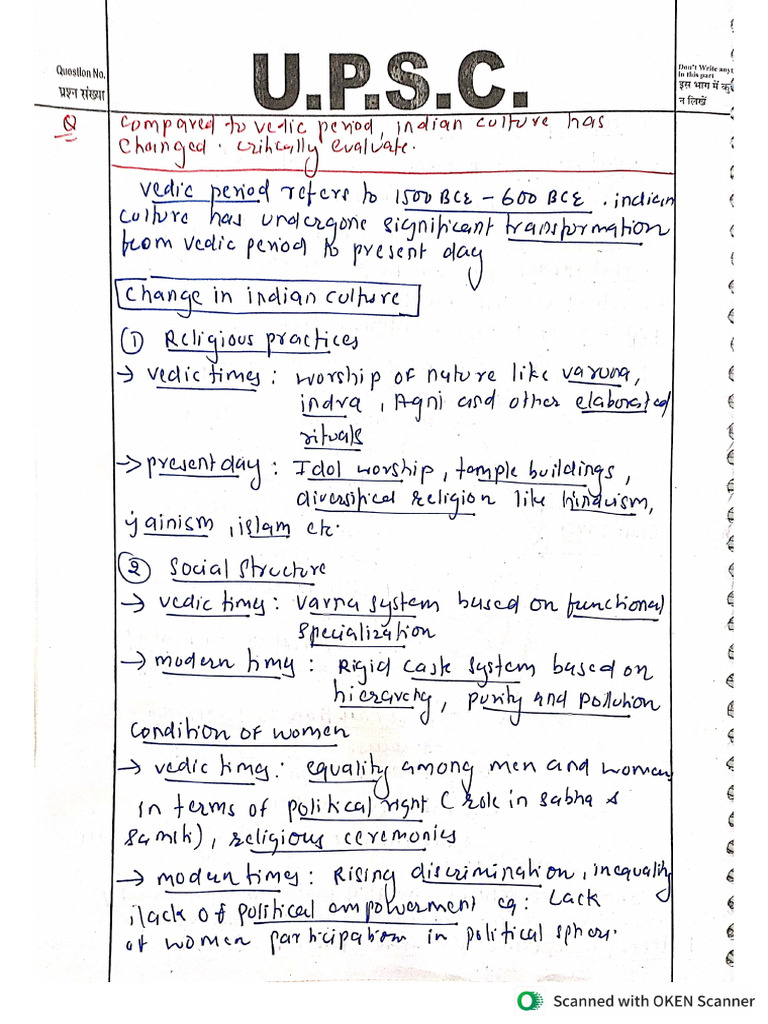 Question No.
प्रश्न संख्या
U.P.S.C.
Don't Write any
in this part
इस भाग में कु
न लिखें
Q Compared to vedic period, indian culture has
Changed. critically evaluate.
vedic period refers to 1500 BCE - 600 BCE. indian
culture has undergone significant transformation
from vedic period to present day
Change in indian culture
① Religious practices
→ vedic times : worship of nature like varuna,
indra, Agni and other elaborated
rituals
→ present day : Idol worship, temple buildings,
diversified religion like hinduism,
jainism, islam etc.
② Social structure
→ vedic times : varna system based on functional
specialization
→ modern times : Rigid caste system based on
hierarchy, purity and pollution
Condition of women
→ vedic times : equality among men and women
in terms of political right ( role in sabha &
samiti), religious ceremonies
→ modern times : Rising discrimination, inequality
, lack of political empowerment eg: Lack
of women participation in political sphere.
Scanned with OKEN Scanner